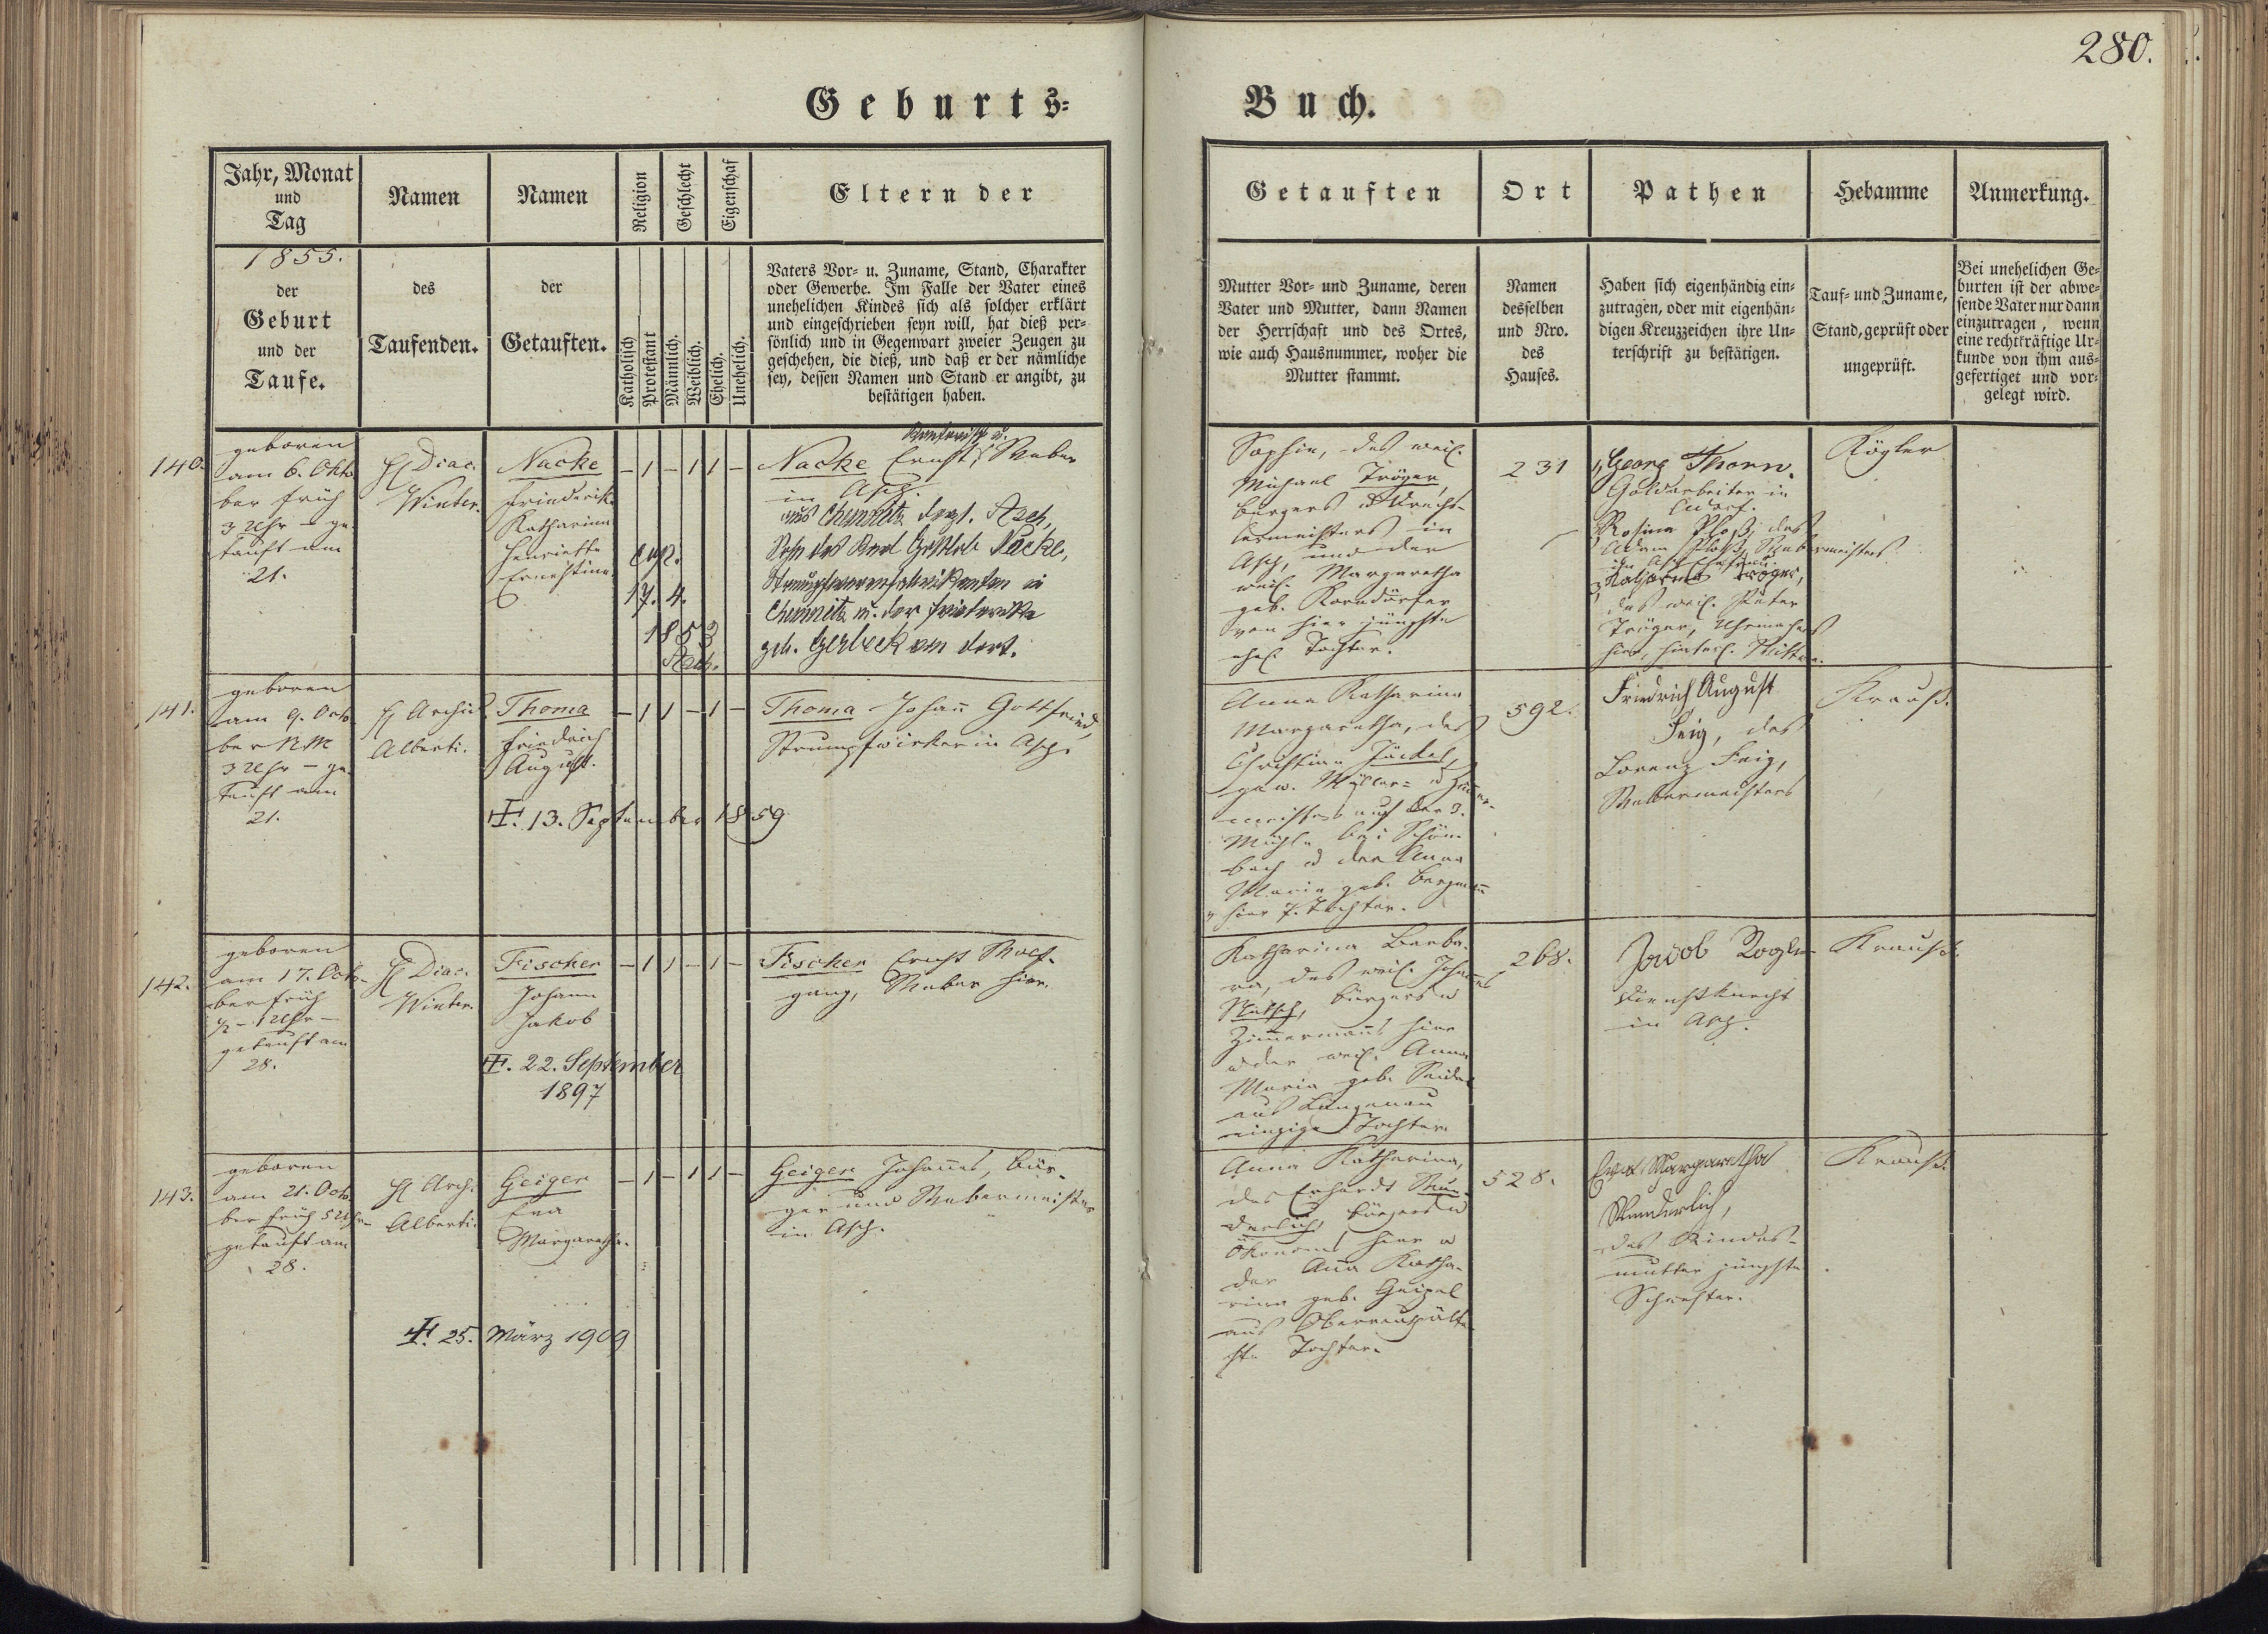 280.
Geburts=
Buch.
Jahr, Monat
und
Tag
1855.
der
Geburt
und der
Taufe.
Namen
des
Taufenden.
Namen
der
Getauften.
Religion
Katholisch
Protestant
Geschlecht
Männlich.
Weiblich.
Eigenschaf
Ehelich.
Unehelich.
Eltern der
Vaters Vor= u. Zuname, Stand, Charakter
oder Gewerbe. Im Falle der Vater eines
unehelichen Kindes sich als solcher erklärt
und eingeschrieben seyn will, hat dieß per=
sönlich und in Gegenwart zweier Zeugen zu
geschehen, die dieß, und daß er der nämliche
sey, dessen Namen und Stand er angibt, zu
bestätigen haben.
Getauften
Mutter Vor= und Zuname, deren
Vater und Mutter, dann Namen
der Herrschaft und des Ortes,
wie auch Hausnummer, woher die
Mutter stammt.
Ort
Namen
desselben
und Nro.
des
Hauses.
Pathen
Haben sich eigenhändig ein=
zutragen, oder mit eigenhän=
digen Kreuzzeichen ihre Un=
terschrift zu bestätigen.
Hebamme
Tauf= und Zuname,
Stand, geprüft oder
ungeprüft.
Anmerkung.
Bei unehelichen Ge=
burten ist der abwe=
sende Vater nur dann
einzutragen, wenn
eine rechtkräftige Ur=
kunde von ihm aus=
gefertiget und vor=
gelegt wird.
140.
geboren
am 6. Okto
ber früh
3 Uhr - ge
tauft am
21.
H Diac.
Winter.
Nacke
Friederik
Katharina
Henriette
Ernestine
- 1 - 1 1 -
cop.
17. 4.
1853
Asch.
Nacke Ernst, Weber
in Asch.
aus Chemnitz Asch,
Sohn des Karl Gottlob Nacke,
Strumpfwarenfabrikanten in
Chemnitz u. der Friederika
geb. Gerbeck von dort.
Sophie, des weil.
Michael Tröger,
Bürgers u
in
Asch, und der
weil. Margaretha
geb. Korndörfer
von hier jüngste
ehel. Tochter.
231
1, Georg Thorn.
Goldarbeiter in
Rosina Ploß, des
Adam Ploß, Webermeisters
in Asch Ehefrau.
3, Katharina Tröger,
des weil. Peter
Tröger, Uhrmachers
hier, hinterl. Wittwe.
Kögler
141.
geboren
am 9. Octo
ber NM
3 Uhr - ge
tauft am
21.
H Archid.
Alberti.
Thoma
Friedrich
August.
- 1 1 - 1 -
Ŧ. 13. September 1859
Thoma Johan̄ Gottfried,
Strumpfwirker in Asch.
Anna Katharina
Margaretha, des
Christian Jäckel,
gew. Müller= u Zimmer-
meisters auf der 3.
Mühle bei Schön
bach u der Anna
Maria geb. Bergman̄
v hier 7. Tochter.
592.
Friedrich August
Feig, des
Lorenz Feig,
Webermeisters
Krauß.
142.
geboren
am 17. Octo-
ber früh
½ - 1 Uhr -
getauft am
28.
H Diac.
Winter.
Fischer
Johann
Jakob
- 1 1 - 1 -
Ŧ. 22. September
1897
Fischer Ernst Wolf-
gang, Weber hier.
Katharina Barba-
ra, des weil. Johan̄es
Bürgers u
Zimmermanns hier
u der weil. Anna
Maria geb.
aus Längenau
einzige Tochter
268.
Jacob Kogler
Dienstknecht
in Asch.
Krauß.
143.
geboren
am 21. Octo
ber früh 5 Uhr
getauft am
28.
H Arch.
Alberti.
Geiger
Eva
Margaretha.
- 1 - 1 1 -
Ŧ. 25. März 1909
Geiger Johannes, Bür-
ger und Webermeister
in Asch.
Anna Katharina,
des Erhardt Wun-
derlich, Bürgers u
Ökonoms hier u
der Anna Katha-
rina geb. Geipel
aus Oberreuth älte-
ste Tochter.
528.
Eva Margaretha
Wunderlich,
des Kindes-
mutter jüngste
Schwester.
Krauß.